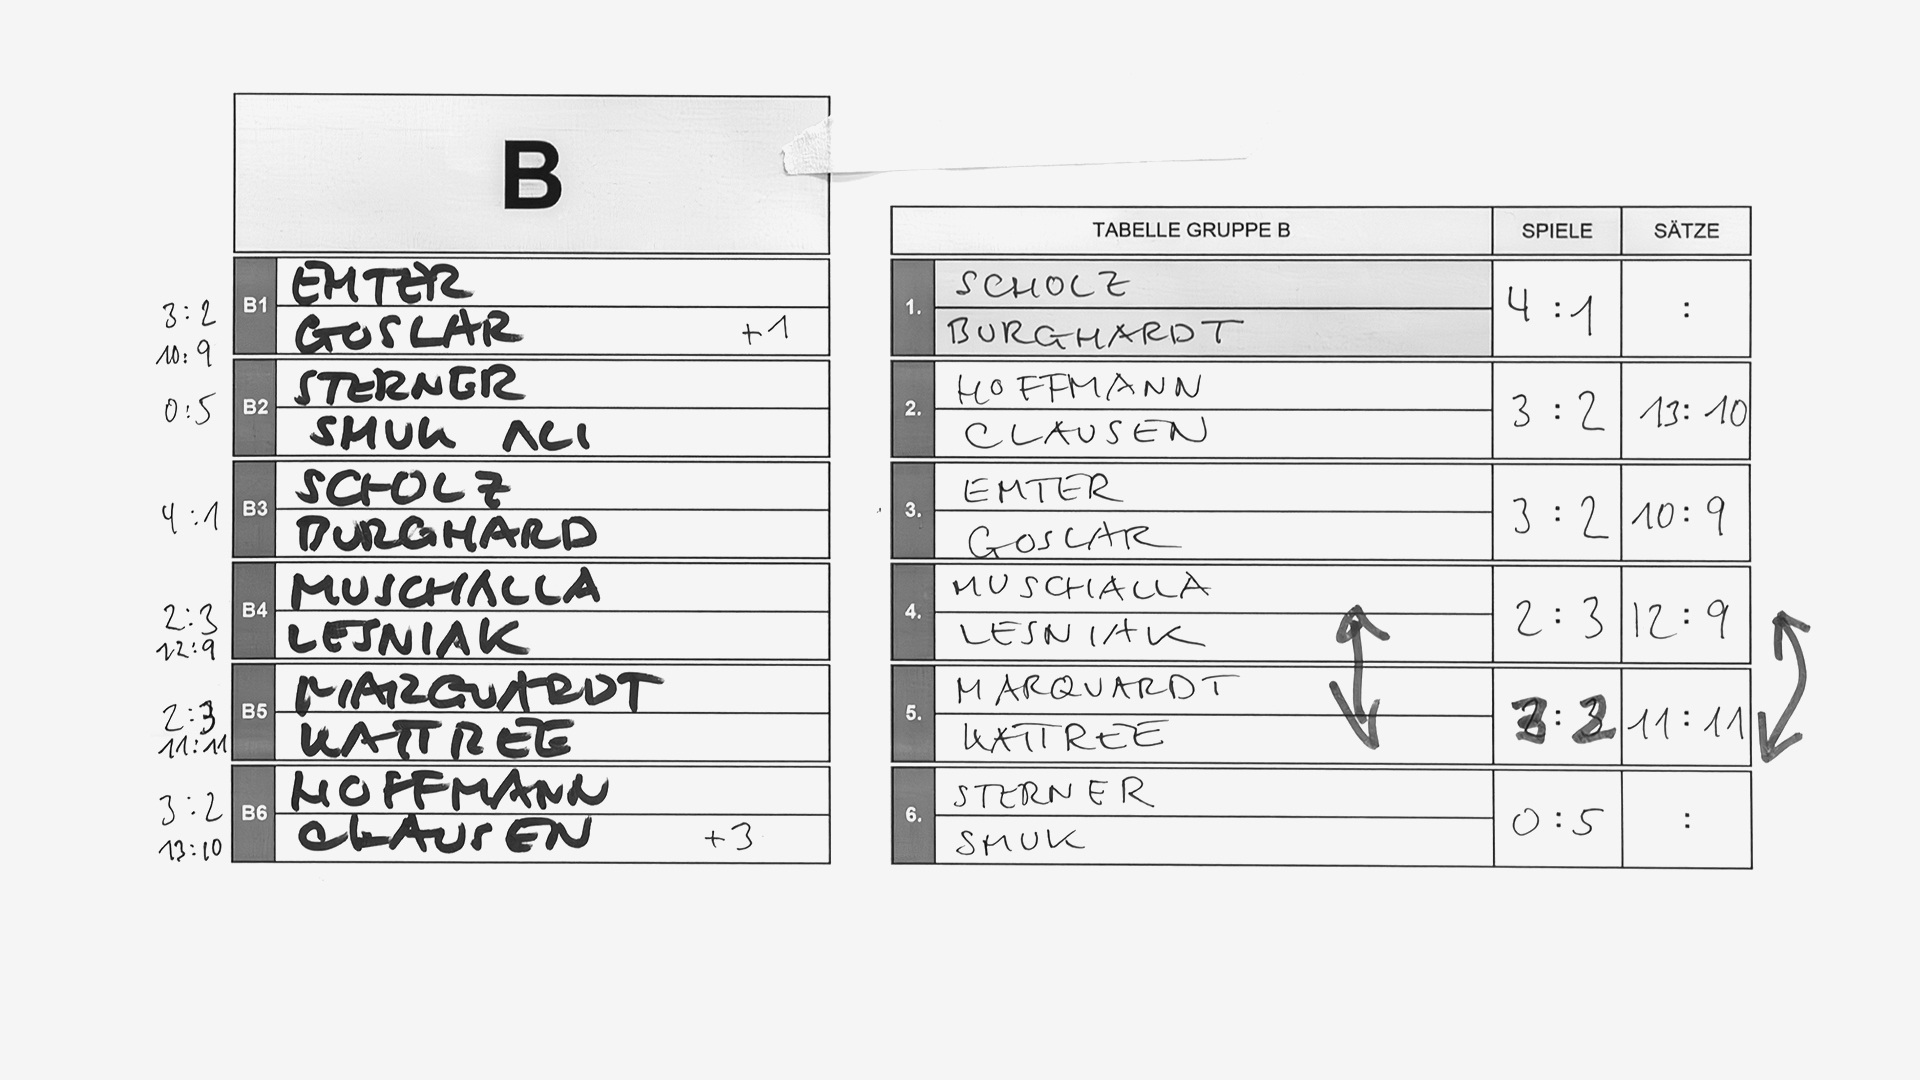 B
3:2
10:9
B1
EMTER
GOSLAR +1
0:5
B2
STERNER
SMUK ALI
4:1
B3
SCHOLZ
BURGHARD
2:3
12:9
B4
MUSCHALLA
LESNIAK
2:3
11:11
B5
MARQUARDT
KATTREE
3:2
13:10
B6
HOFFMANN
CLAUSEN +3
TABELLE GRUPPE B SPIELE SÄTZE
1.
SCHOLZ
BURGHARDT
4:1 :
2.
HOFFMANN
CLAUSEN
3:2 13:10
3.
EMTER
GOSLAR
3:2 10:9
4.
MUSCHALLA
LESNIAK
2:3 12:9
5.
MARQUARDT
KATTREE
11:11
6.
STERNER
SMUK
0:5 :